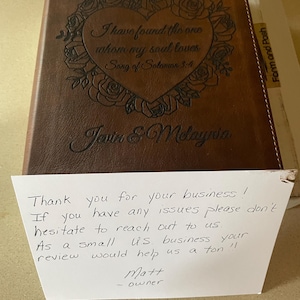 I have found the one
whom my soul loves.
Song of Solomon 3:4
Jevin & Melaynia
Thank you for your business!
If you have any issues please don't
hesitate to reach out to us
As a small US business your
review would help us a ton!!
Matt
- owner